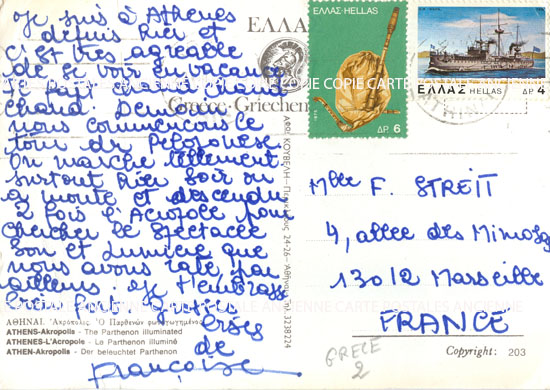 Je suis à Athènes
depuis hier et
c'est très agréable
de se voir en vacance
chaud. Demain
nous commençons le
tour du Péloponèse.
On marche tellement
surtout hier soir on
a monté et descendu
2 fois l'Acropole pour
chercher le spectacle
Son et Lumière que
nous avons raté par
ailleurs. Je t'embrasse
très fort. Grosses
bises
de
Françoise
ΑΘΗΝΑΙ. Ἀκρόπολις. Ὁ Παρθενών φωταγωγημένος
ATHENS-Akropolis - The Parthenon illuminated
ATHENES-L'Acropole - Le Parthénon illuminé
ATHEN-Akropolis - Der beleuchtet Parthenon
ΕΛΛΑ
Greece-Griechen
ΑΦΟΙ ΚΟΥΒΕΛΗ - 24-26 - Τηλ. 3238224
ΕΛΛΑΣ-HELLAS
ΔΡ. 6
ΕΛΛΑΣ HELLAS ΔΡ 4
Mlle F. STREIT
4, allée des Mimosas
13012 Marseille
FRANCE
GRECE
2
Copyright: 203
CARTE POSTALES ANCIENNE